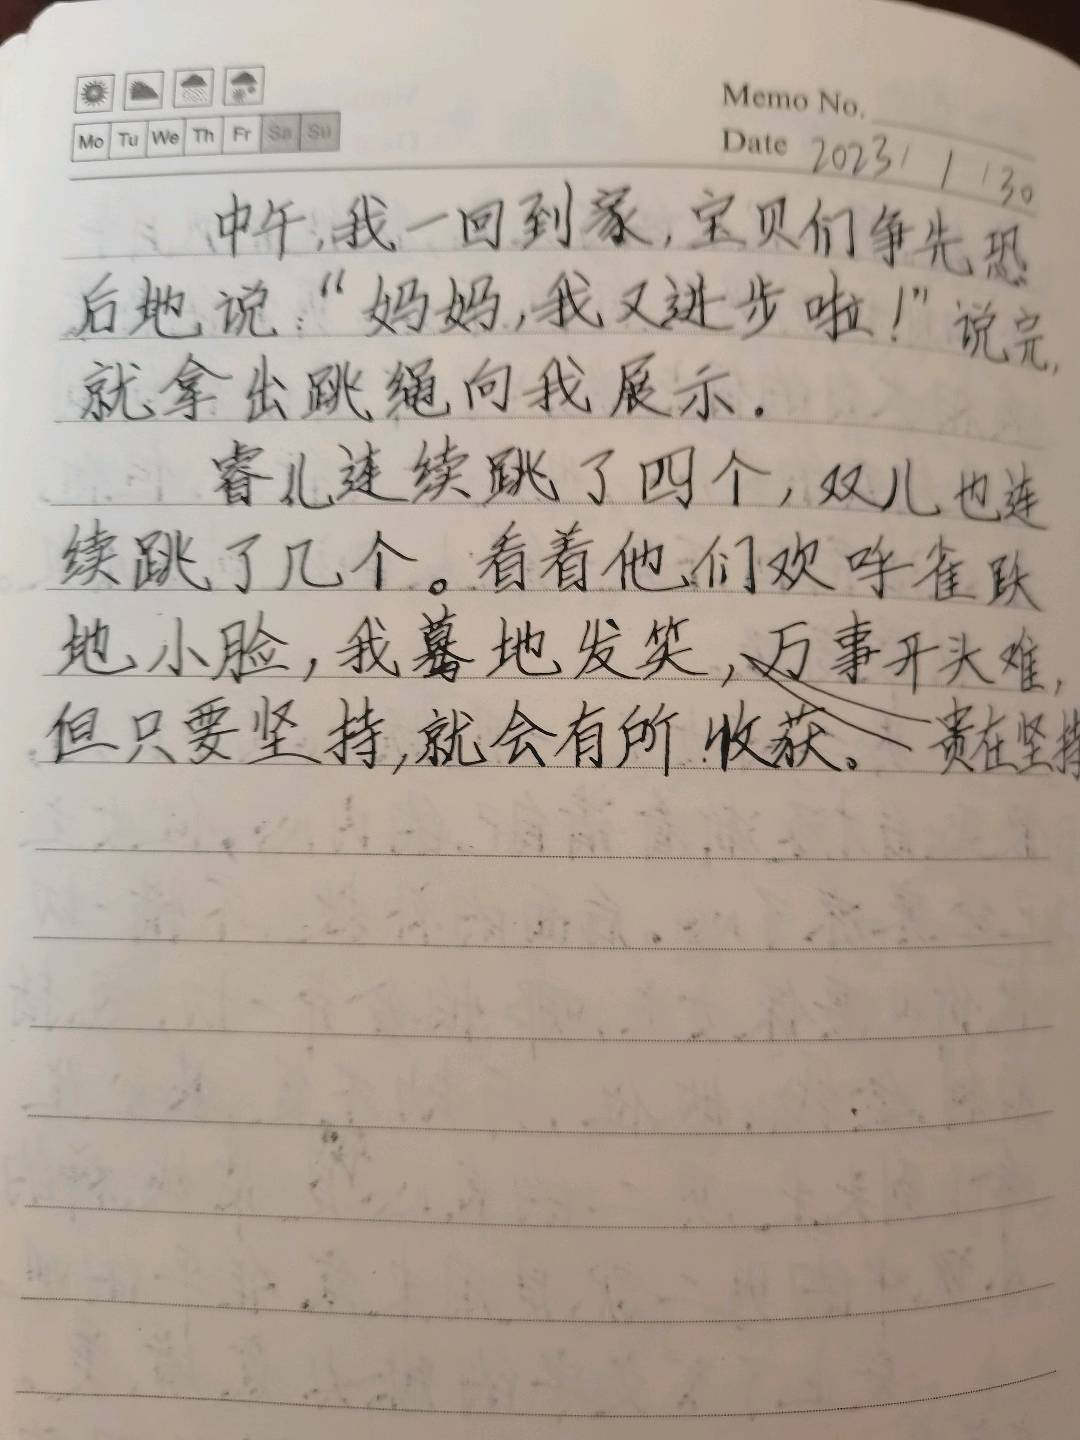 Mo Tu We Th Fr Sa Su
Memo No.
Date 2023/1/30
中午,我一回到家,宝贝们争先恐
后地说:“妈妈,我又进步啦!”说完,
就拿出跳绳向我展示.
睿儿连续跳了四个,双儿也连
续跳了几个。看着他们欢呼雀跃
地小脸,我蓦地发笑,万事开头难,
但只要坚持,就会有所收获。贵在坚持